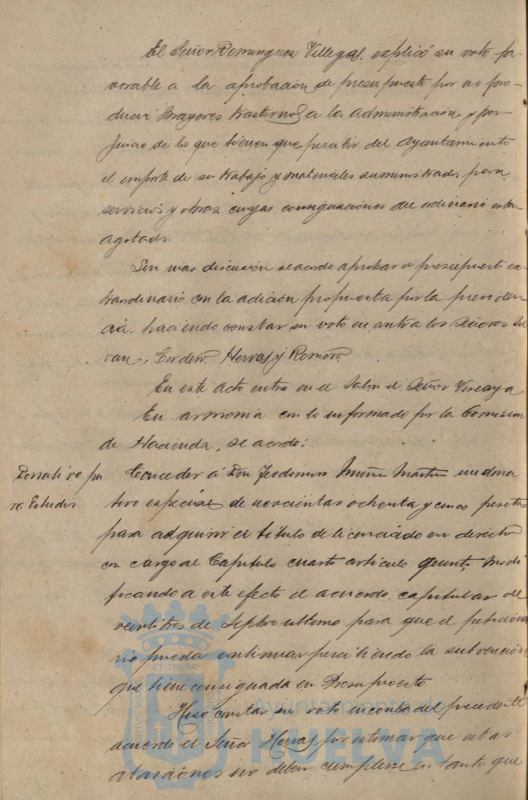 El Señor Dominguez Villegas, explicó su voto fa-
vorable a la aprobacion de presupuesto por no pro-
ducir mayores trastornos a la administración y per-
juicio de lo que tienen que percibir del Ayuntamiento
el importe de su trabajo y materiales suministrados para
servicios y obras cuyas consignaciones del ordinario estan
agotadas.
Sin mas discusion se acordo aprobar el presupuesto ex-
traordinario con la adición propuesta por la presiden-
cia, haciendo constar su voto en contra los Señores
Cordero, Hervas y Romero.
En este acto entra en el Salon el Señor Vizcaya
En armonia con lo informado por la Comision
de Hacienda, se acordo:
Donativo pa
ra Estudios
Conceder á Don Muñiz Martin un dona
tivo especial de ochenta y cinco pesetas
para adquirir el titulo de licenciado en derecho
con cargo al Capitulo cuarto articulo quinto, modi
ficando a este efecto el acuerdo capitular de
veintitres de Septbre ultimo para que el peticiona
rio pueda continuar percibiendo la subvención
que tiene consignada en Presupuesto
Hizo constar su voto en contra del precedente
acuerdo el Señor Hervas por estimar que estas
atenciones no deben cumplirse en tanto que
Ayuntamiento de
HUELVA